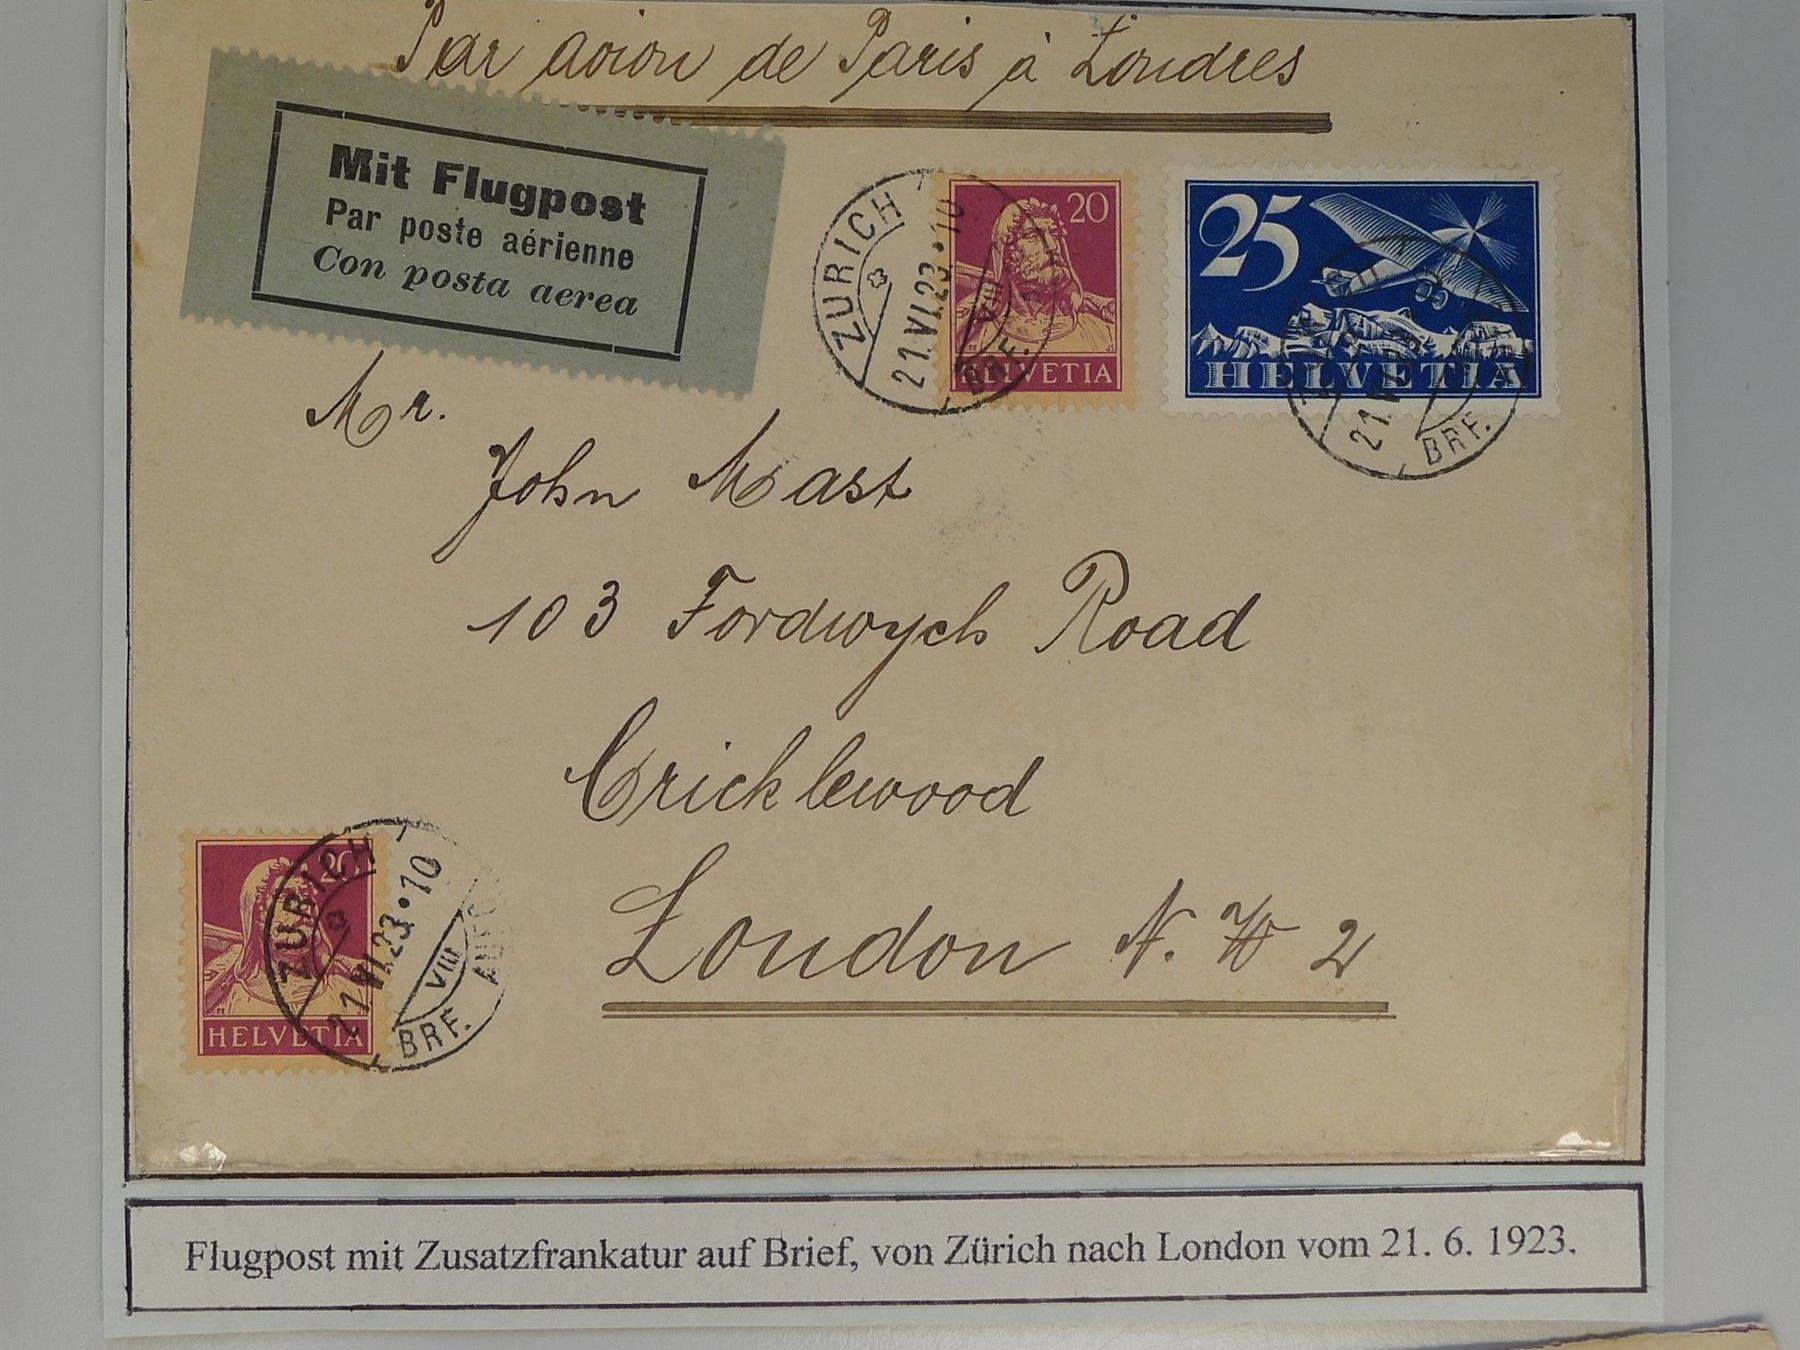 Par avion de Paris à Londres
Mit Flugpost
Par poste aérienne
Con posta aerea
ZÜRICH
21.VI.23•10
VIII
BRF.
20
HELVETIA
25
HELVETIA
21.VI
BRF.
Mr.
John Mast
103 Fordwych Road
Cricklewood
London N. W 2
20
HELVETIA
ZÜRICH
21.VI.23•10
VIII
BRF.
Flugpost mit Zusatzfrankatur auf Brief, von Zürich nach London vom 21. 6. 1923.